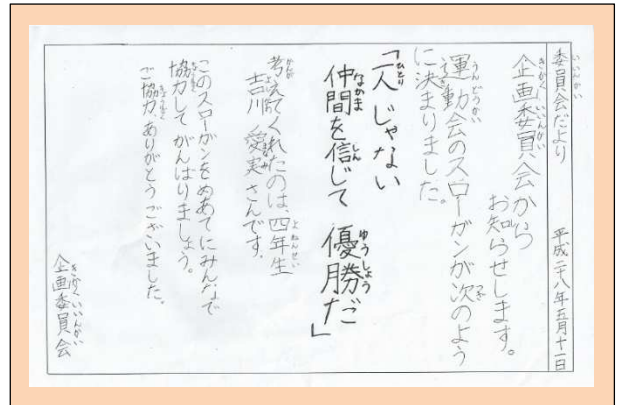 委員会だより　平成二十八年五月十一日
企画委員会から
お知らせします。
運動会のスローガンが次のよう
に決まりました。
「一人じゃない
仲間を信じて　優勝だ」
考えてくれたのは、四年生
吉川　愛実さんです。
このスローガンをめあてにみんなで
協力してがんばりましょう。
ご協力、ありがとうございました。
企画委員会